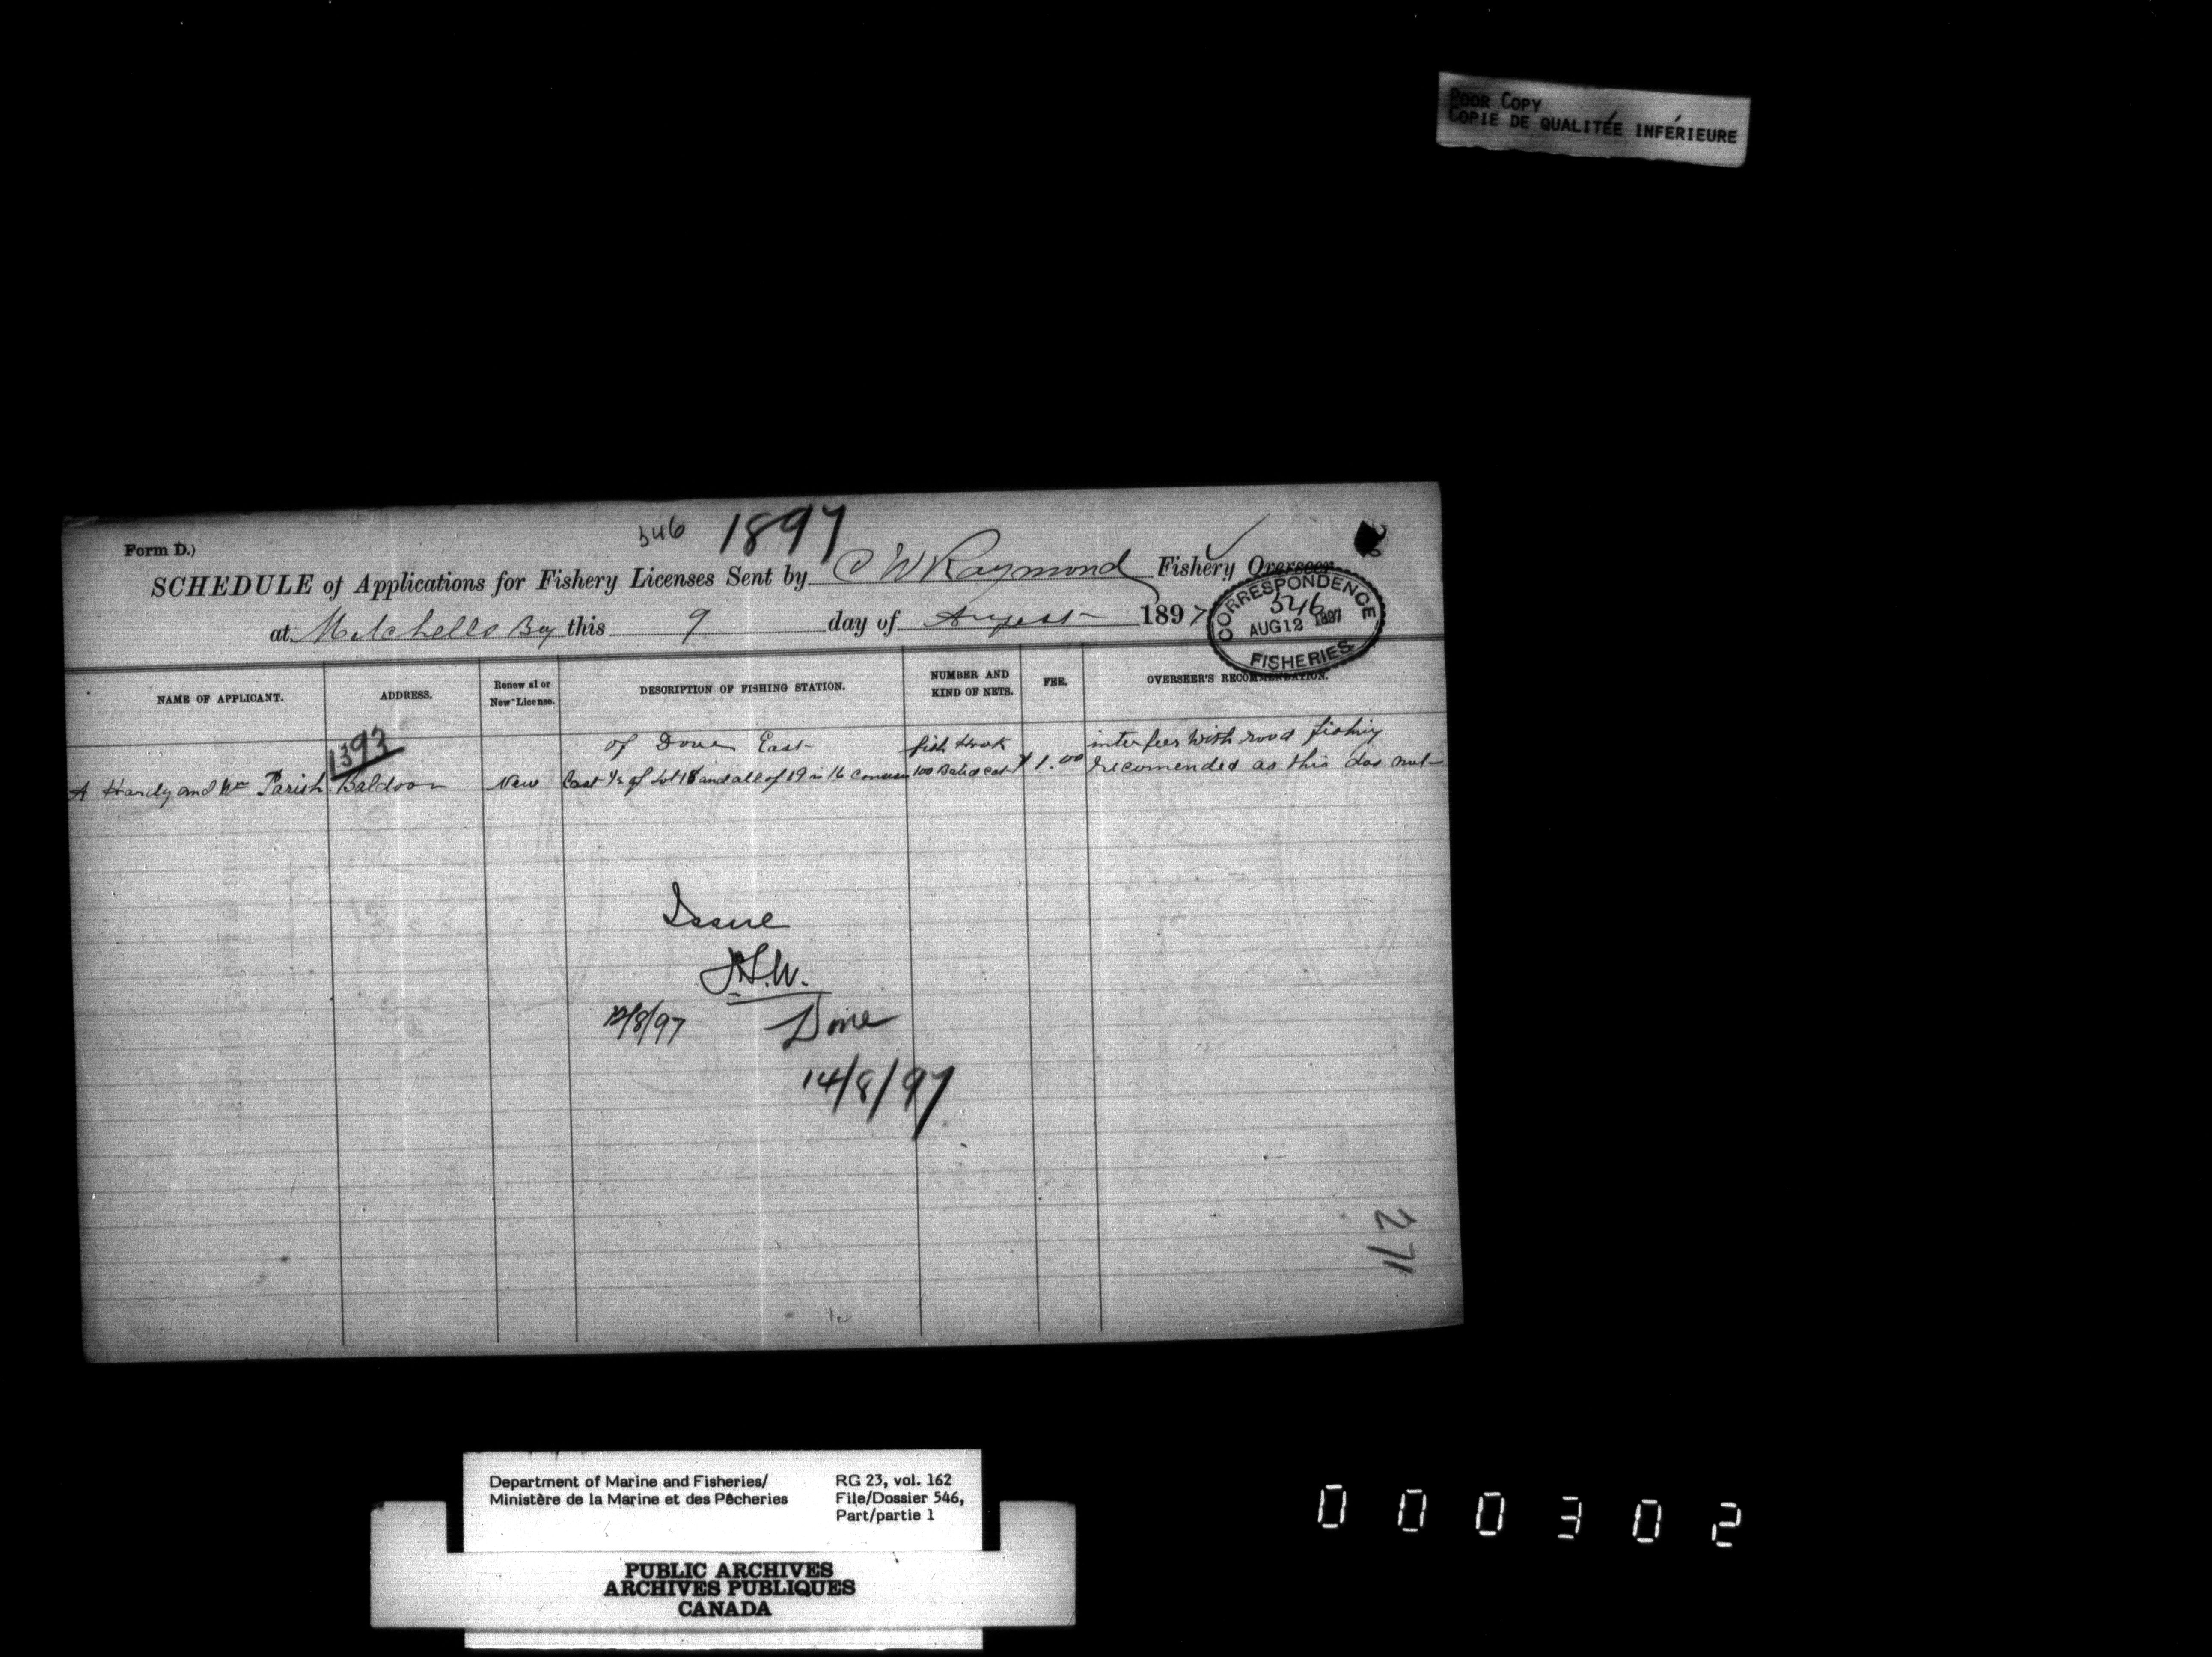 POOR COPY
COPIE DE QUALITÉE INFÉRIEURE
546 1897
Form D.)
SCHEDULE of Applications for Fishery Licenses Sent by C W Raymond Fishery Overseer
at Mitchells Bay this 9 day of August 1897
CORRESPONDENCE
546
AUG 12 1897
FISHERIES
NAME OF APPLICANT.
ADDRESS.
Renewal or
New License.
DESCRIPTION OF FISHING STATION.
NUMBER AND
KIND OF NETS.
FEE.
OVERSEER'S RECOMMENDATION.
1393
of Dover East fish Hook interfeer with rood fishing
A Hardy and Wm Parish Baldoon New East ½ of Lot 18 and all of 19 in 16 100 Bated $1.00 recomended as this dos not
Issue
12/8/97 Done
14/8/97
271
Department of Marine and Fisheries/
Ministère de la Marine et des Pêcheries
RG 23, vol. 162
File/Dossier 546,
Part/partie 1
PUBLIC ARCHIVES
ARCHIVES PUBLIQUES
CANADA
000302